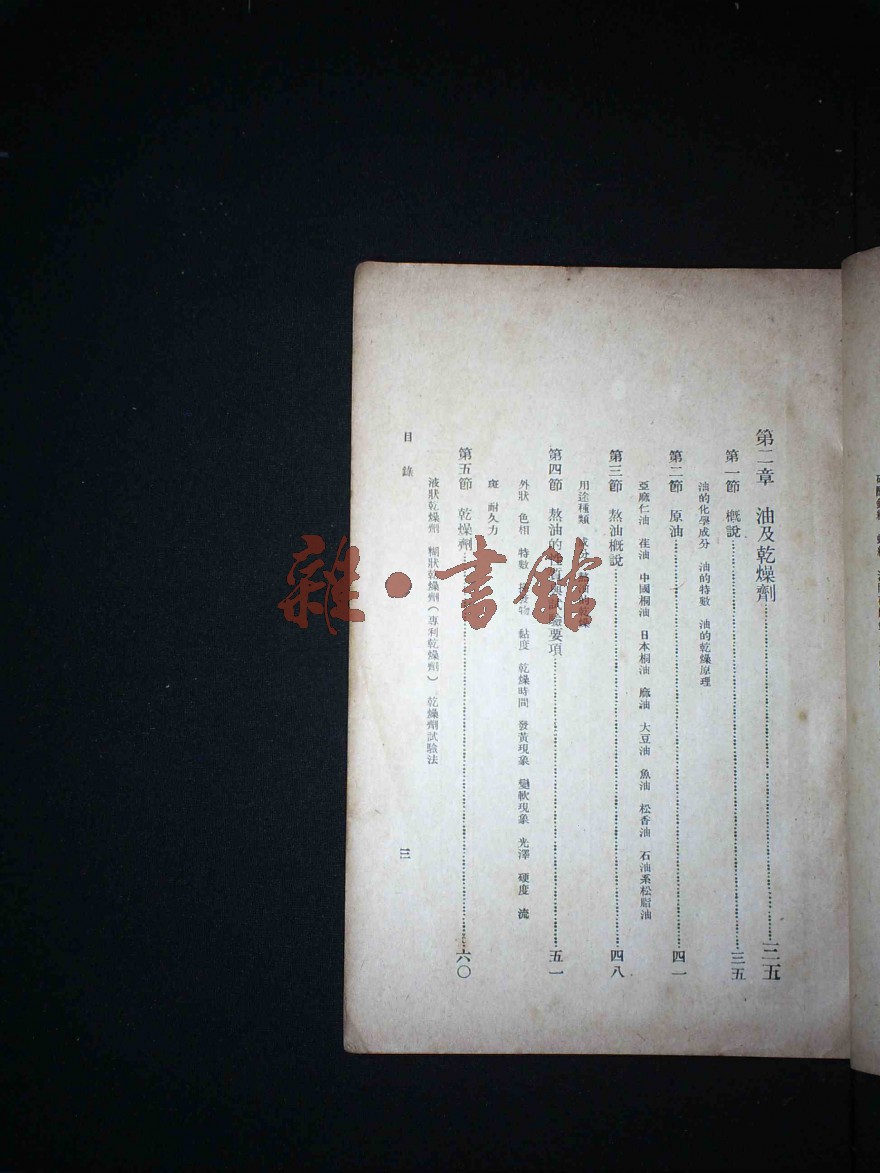 第二章 油及乾燥劑……三五
第一節 概說……三五
油的化學成分 油的特數 油的乾燥原理
第二節 原油……四一
亞麻仁油 荏油 中國桐油 日本桐油 麻油 大豆油 魚油 松香油 石油系松脂油
第三節 熬油概說……四八
用途種類
第四節 熬油的性質與試驗要項……五一
外狀 色相 特數 黏度 乾燥時間 發黃現象 變軟現象 光澤 硬度 流
斑 耐久力
第五節 乾燥劑……六〇
液狀乾燥劑 糊狀乾燥劑(專利乾燥劑) 乾燥劑試驗法
目錄 三
雜·書館